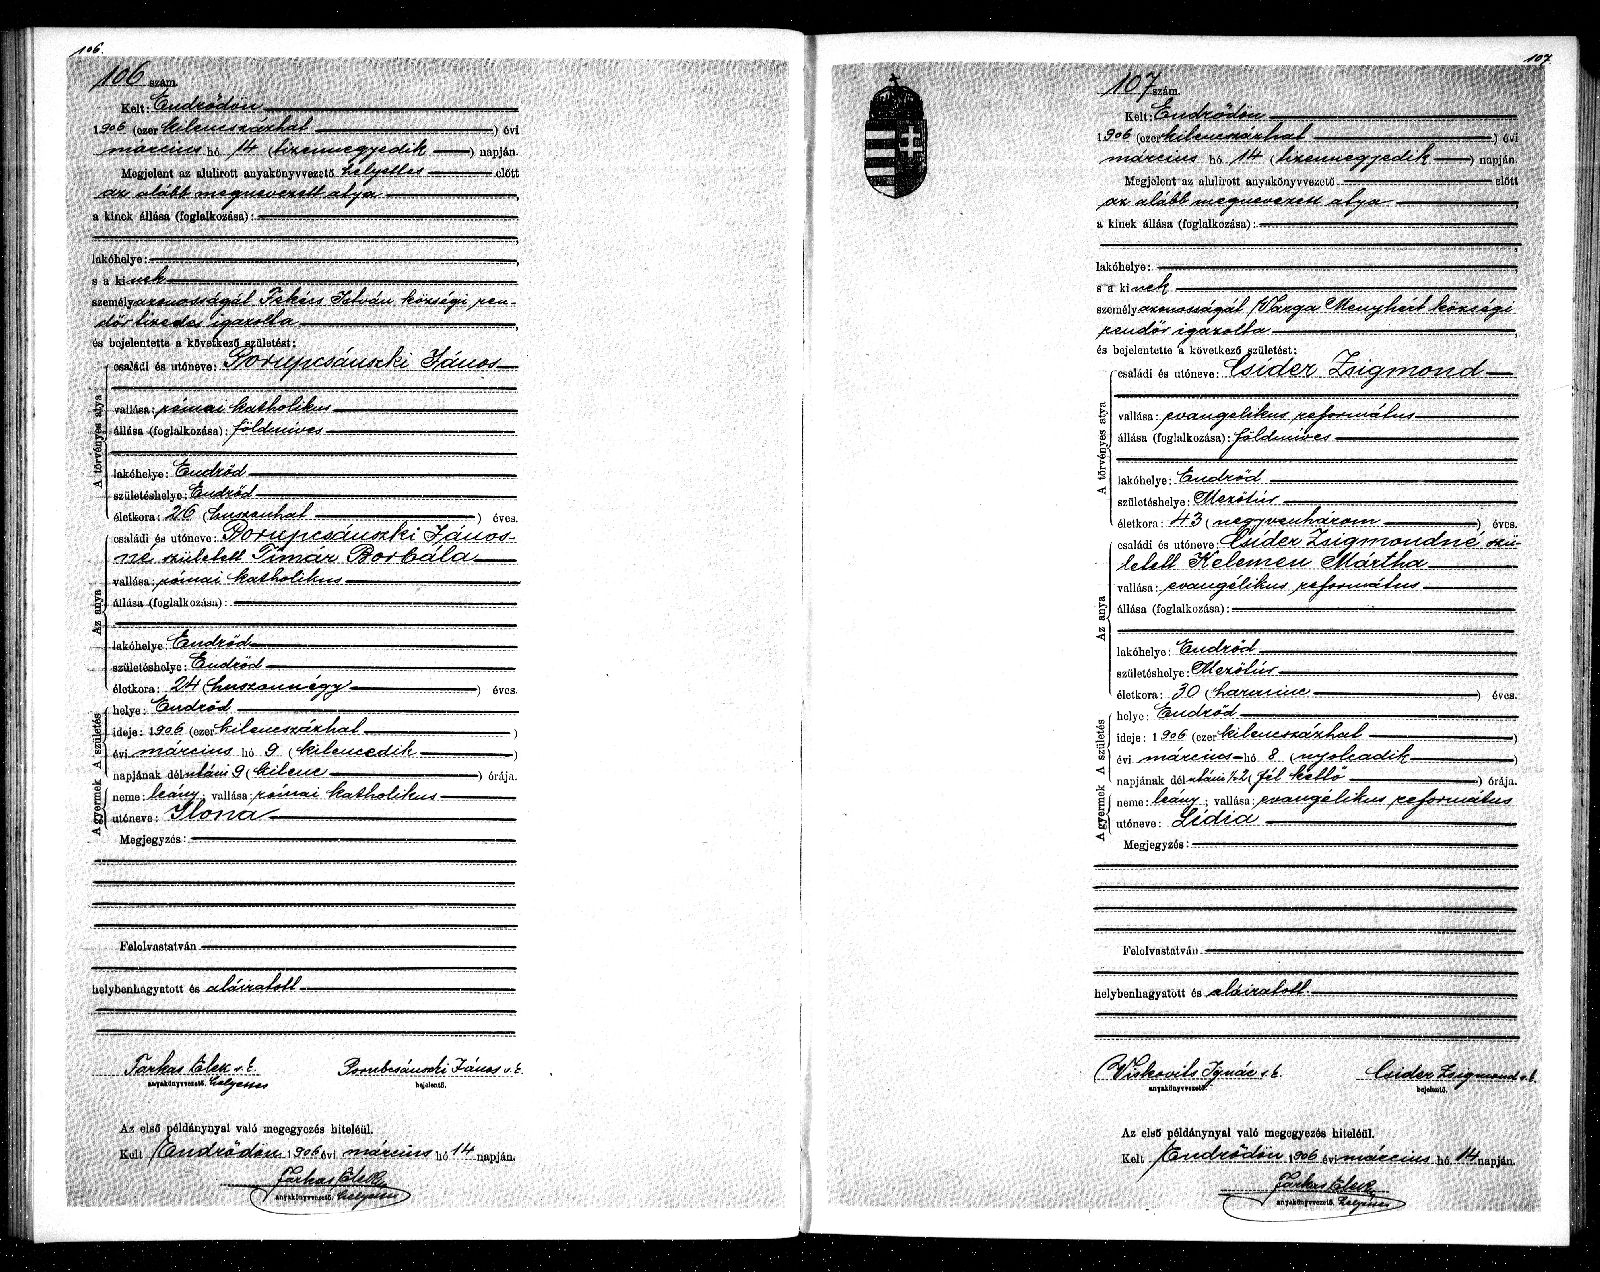 106.
106 szám.
Kelt: Endrődön
1906 (ezer kilencszázhat) évi
március hó 14 (tizennegyedik) napján.
Megjelent az alulirott anyakönyvvezető helyettes előtt
az alább megnevezett atya
a kinek állása (foglalkozása):
lakóhelye:
s a kinek
személyazonosságát István községi ren-
dőr tizedes igazolta
és bejelentette a következő születést:
A törvényes atya
családi és utóneve: János
vallása: római katholikus
állása (foglalkozása): földmíves
lakóhelye: Endrőd
születéshelye: Endrőd
életkora: 26 (huszonhat) éves.
Az anya
családi és utóneve: János-
né született Timár Borbála
vallása: római katholikus
állása (foglalkozása):
lakóhelye: Endrőd
születéshelye: Endrőd
életkora: 24 (huszonnégy) éves.
A születés
helye: Endrőd
ideje: 1906 (ezer kilencszázhat)
évi március hó 9 (kilencedik)
napjának délutáni 9 (kilenc) órája.
A gyermek
neme: leány; vallása: római katholikus
utóneve: Ilona
Megjegyzés:
Felolvastatván
helybenhagyatott és aláiratott
Farkas Elek s. k. János s. k.
anyakönyvvezető. helyettes bejelentő.
Az első példánynyal való megegyezés hiteléül.
Kelt Endrődön 1906 évi március hó 14 napján.
Farkas Elek
anyakönyvvezető. helyettes
107.
107 szám.
Kelt: Endrődön
1906 (ezer kilencszázhat) évi
március hó 14 (tizennegyedik) napján.
Megjelent az alulirott anyakönyvvezető előtt
az alább megnevezett atya
a kinek állása (foglalkozása):
lakóhelye:
s a kinek
személyazonosságát Varga Menyhért községi
rendőr igazolta
és bejelentette a következő születést:
A törvényes atya
családi és utóneve: Csider Zsigmond
vallása: evangélikus református
állása (foglalkozása): földmíves
lakóhelye: Endrőd
születéshelye: Mezőtúr
életkora: 43 (negyvenhárom) éves.
Az anya
családi és utóneve: Csider Zsigmondné szü-
letett Kelemen Mártha
vallása: evangélikus református
állása (foglalkozása):
lakóhelye: Endrőd
születéshelye: Mezőtúr
életkora: 30 (harminc) éves.
A születés
helye: Endrőd
ideje: 1906 (ezer kilencszázhat)
évi március hó 8 (nyolcadik)
napjának délutáni ½2 (fél kettő) órája.
A gyermek
neme: leány; vallása: evangélikus református
utóneve: Lidia
Megjegyzés:
Felolvastatván
helybenhagyatott és aláiratott.
Viskovits Ignác s. k. Csider Zsigmond s. k.
anyakönyvvezető. bejelentő.
Az első példánynyal való megegyezés hiteléül.
Kelt Endrődön 1906 évi március hó 14 napján.
Farkas Elek
anyakönyvvezető. helyettes